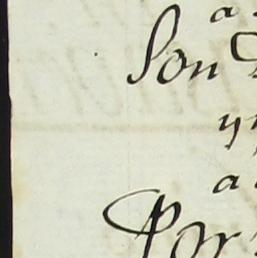 a
Son
yn
a
Por